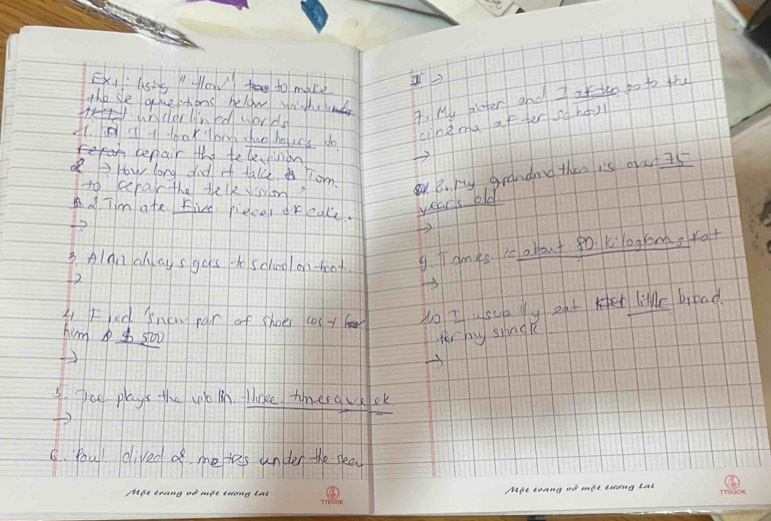 Ex1: Using "How" to make
the se questions below with
underlined words
1. It took Tom two hours to
repair the television
→ How long did it take Tom
to repair the television?
2 Tim ate Five pieces of cake.
→
3 Alan always goes to school on foot.
→
4 Fred's new pair of shoes cost
him $ 500
→
5 Joe plays the violin three times a week
→
6. Paul dived 2 metres under the sea
Một trang vở một tương lai
TTBOOK
→
7. My sister and I often go to the
cinema after school
→
8. My grandmother is over 75
years old.
→
9 James is about 80. kilograms fat
→
10 I usually eat little bread.
for my snack
→
Một trang vở một tương lai
TTBOOK